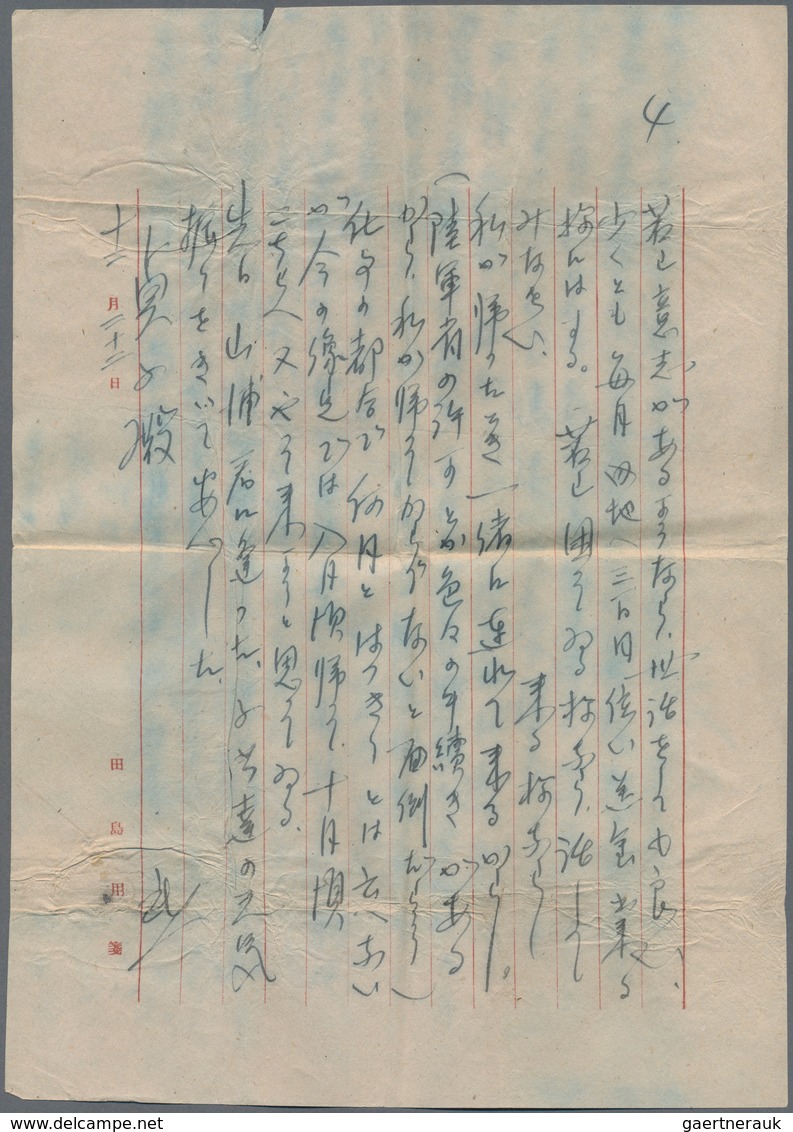 4
若し意志があるようなら、世話をしても良い、
少くとも毎月内地へ三百円位い送金出来る
様にはする。若し困ってゐる様なら、話して
みなさい、
来る様なら
私が帰ったとき一緒に連れて来るから。
(陸軍省の許可とか色々の手續きがある
から、私が帰ってからでないと面倒だらう)
仕事の都合で何月とはっきりとは云へない
が今の豫定では八月頃帰って、十月頃
こちらへ又やって来ようと思ってゐる。
先日山浦君に逢った、子供達の元気
振りをきいて安心した、
十二月二十二日
子殿
武
田島用箋
gaertnerauk